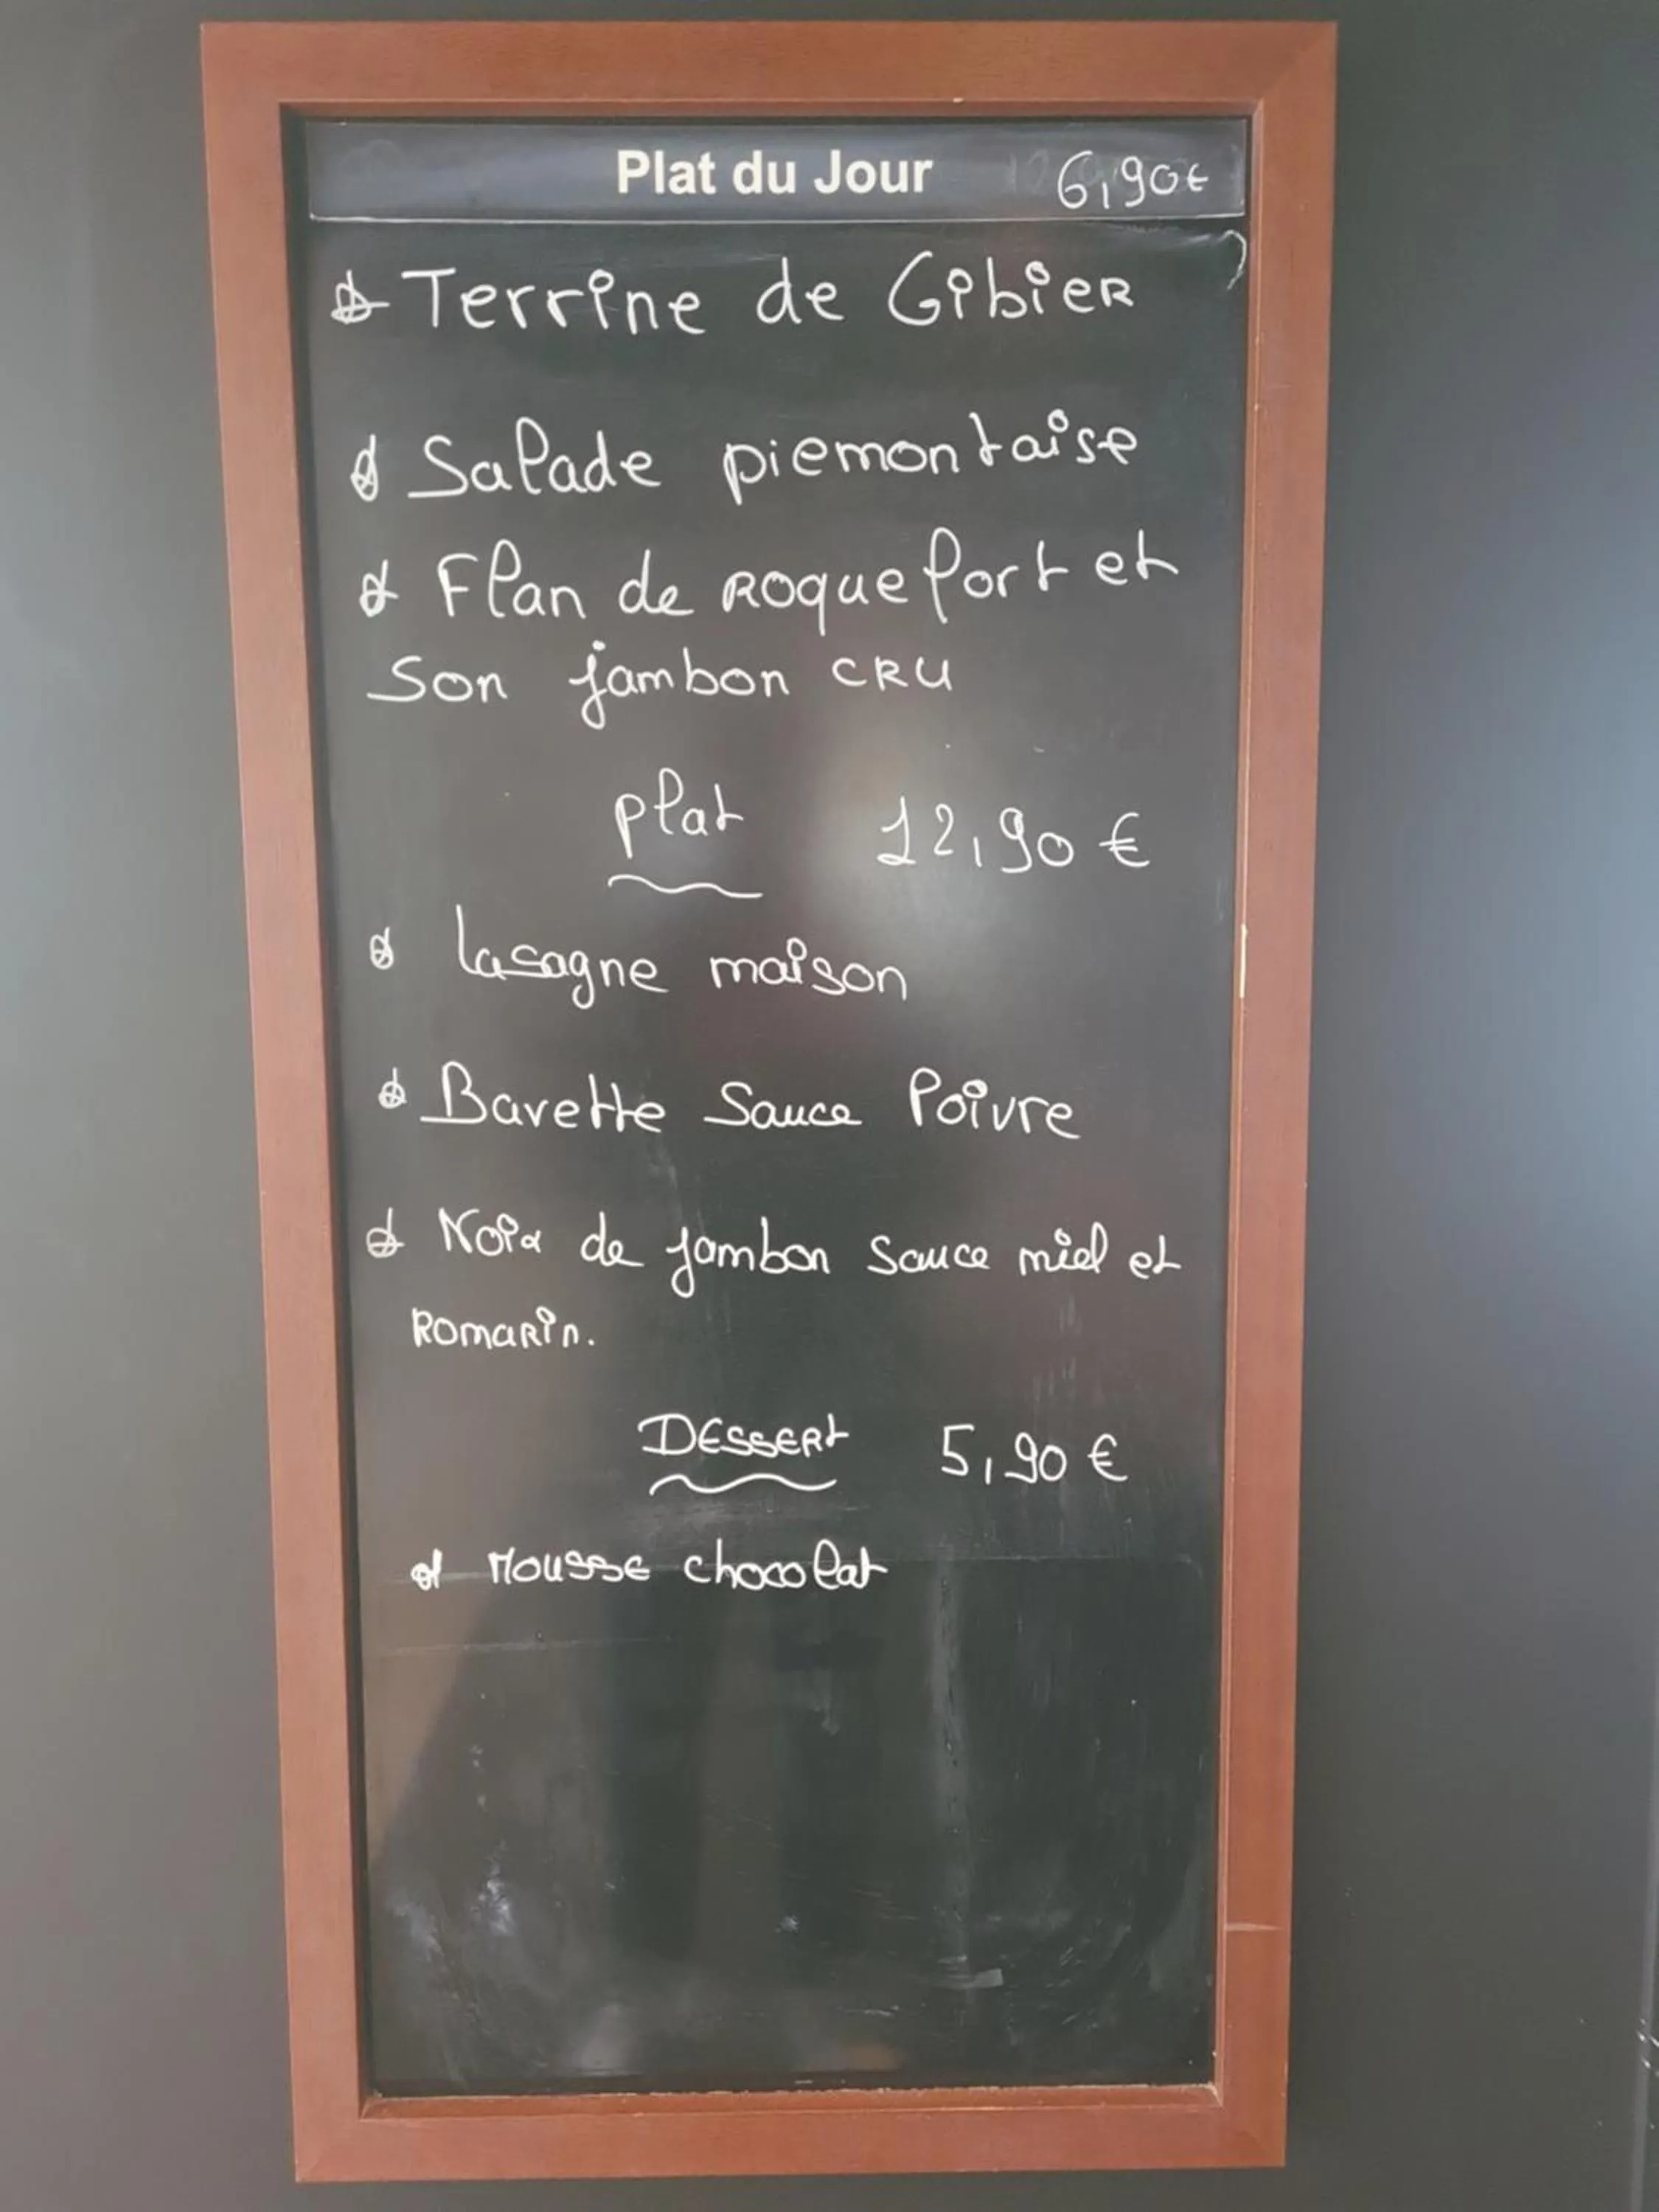 Plat du Jour 6,90€
Terrine de Gibier
Salade piemontaise
Flan de Roquefort et
son jambon CRU
plat 12,90 €
Lasagne maison
Bavette Sauce Poivre
Noix de jambon Sauce miel et
Romarin.
DESSERt 5,90 €
Mousse chocolat